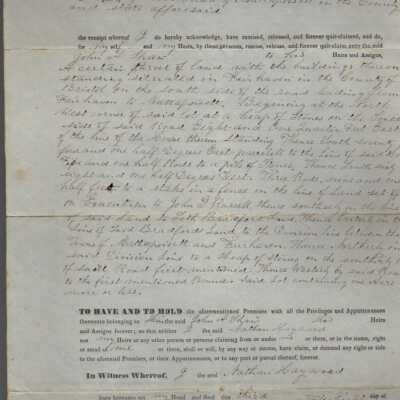 and state aforesaid
the receipt whereof I do hereby acknowledge, have remised, released, and forever quit-claimed, and do,
for myself and my Heirs, by these presents, remise, release, and forever quit-claim, unto the said
John A Shaw to his Heirs and Assigns,
A certain tract of land with the buildings thereon
standing situated in Fairhaven in the County of
Bristol on the south side of the road leading from
Fairhaven to Mattapoisett. Beginning at the North
west corner of said lot at a heap of stones on the South
side of said Road Eight and One quarter feet East
of the line of the House thereon standing Thence South seventy
five and one half Degrees East parallel to the line of said
and one half Rods to a pile of Stones, Thence South sixty
eight and one half Degrees West Three Rods, nine and one
half feet to a stake in a fence on the line of Land set off
to John D thence southerly on the line
of said Land to Seth Bradford Land, Thence on the
line of said Bradford Land to the Division line between the
Towns of Mattapoisett and Fairhaven Thence Northerly on
said Division line to a heap of stones on the southerly
of said Road first mentioned, Thence Westerly by said Road
to the first mentioned Bounds said lot containing one Acre
more or less.
TO HAVE AND TO HOLD the aforementioned Premises with all the Privileges and Appurtenances
thereunto belonging to him the said John A Shaw his Heirs
and Assigns forever; so that neither I the said Nathan Hayward
nor my Heirs or any other person or persons claiming from or under me or them, or in the name, right
or stead of me or them, shall or will, by any way or means, have, claim, or demand any right or title
to the aforesaid Premises, or their Appurtenances, or to any part or parcel thereof, forever.
In Witness Whereof, I the said Nathan Hayward
have hereunto set my Hand and Seal this third day of